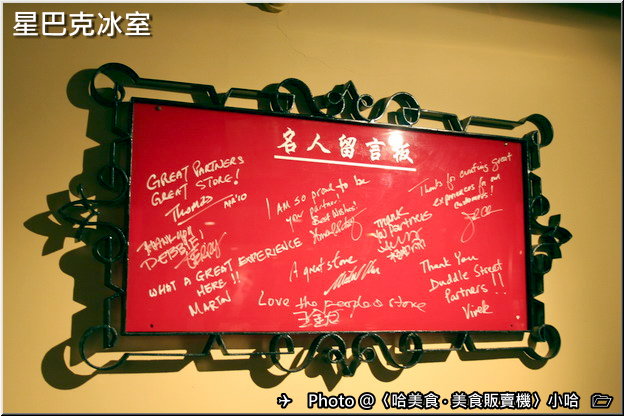 星巴克冰室
名人留言板
GREAT PARTNERS
GREAT STORE!
THOMAS
APR '10
I AM SO proud to be
your partner!
Best Wishes
Thanks for creating great
experiences for our
customers!
THANK YOU
DEBBIE!
THANK
You PARTNERS
WHAT A GREAT EXPERIENCE
HERE!!
MARTIN
A great store
Love the people & store
Thank You
Duddle Street
Partners!!
Vivek
Photo @〈哈美食‧美食販賣機〉小哈